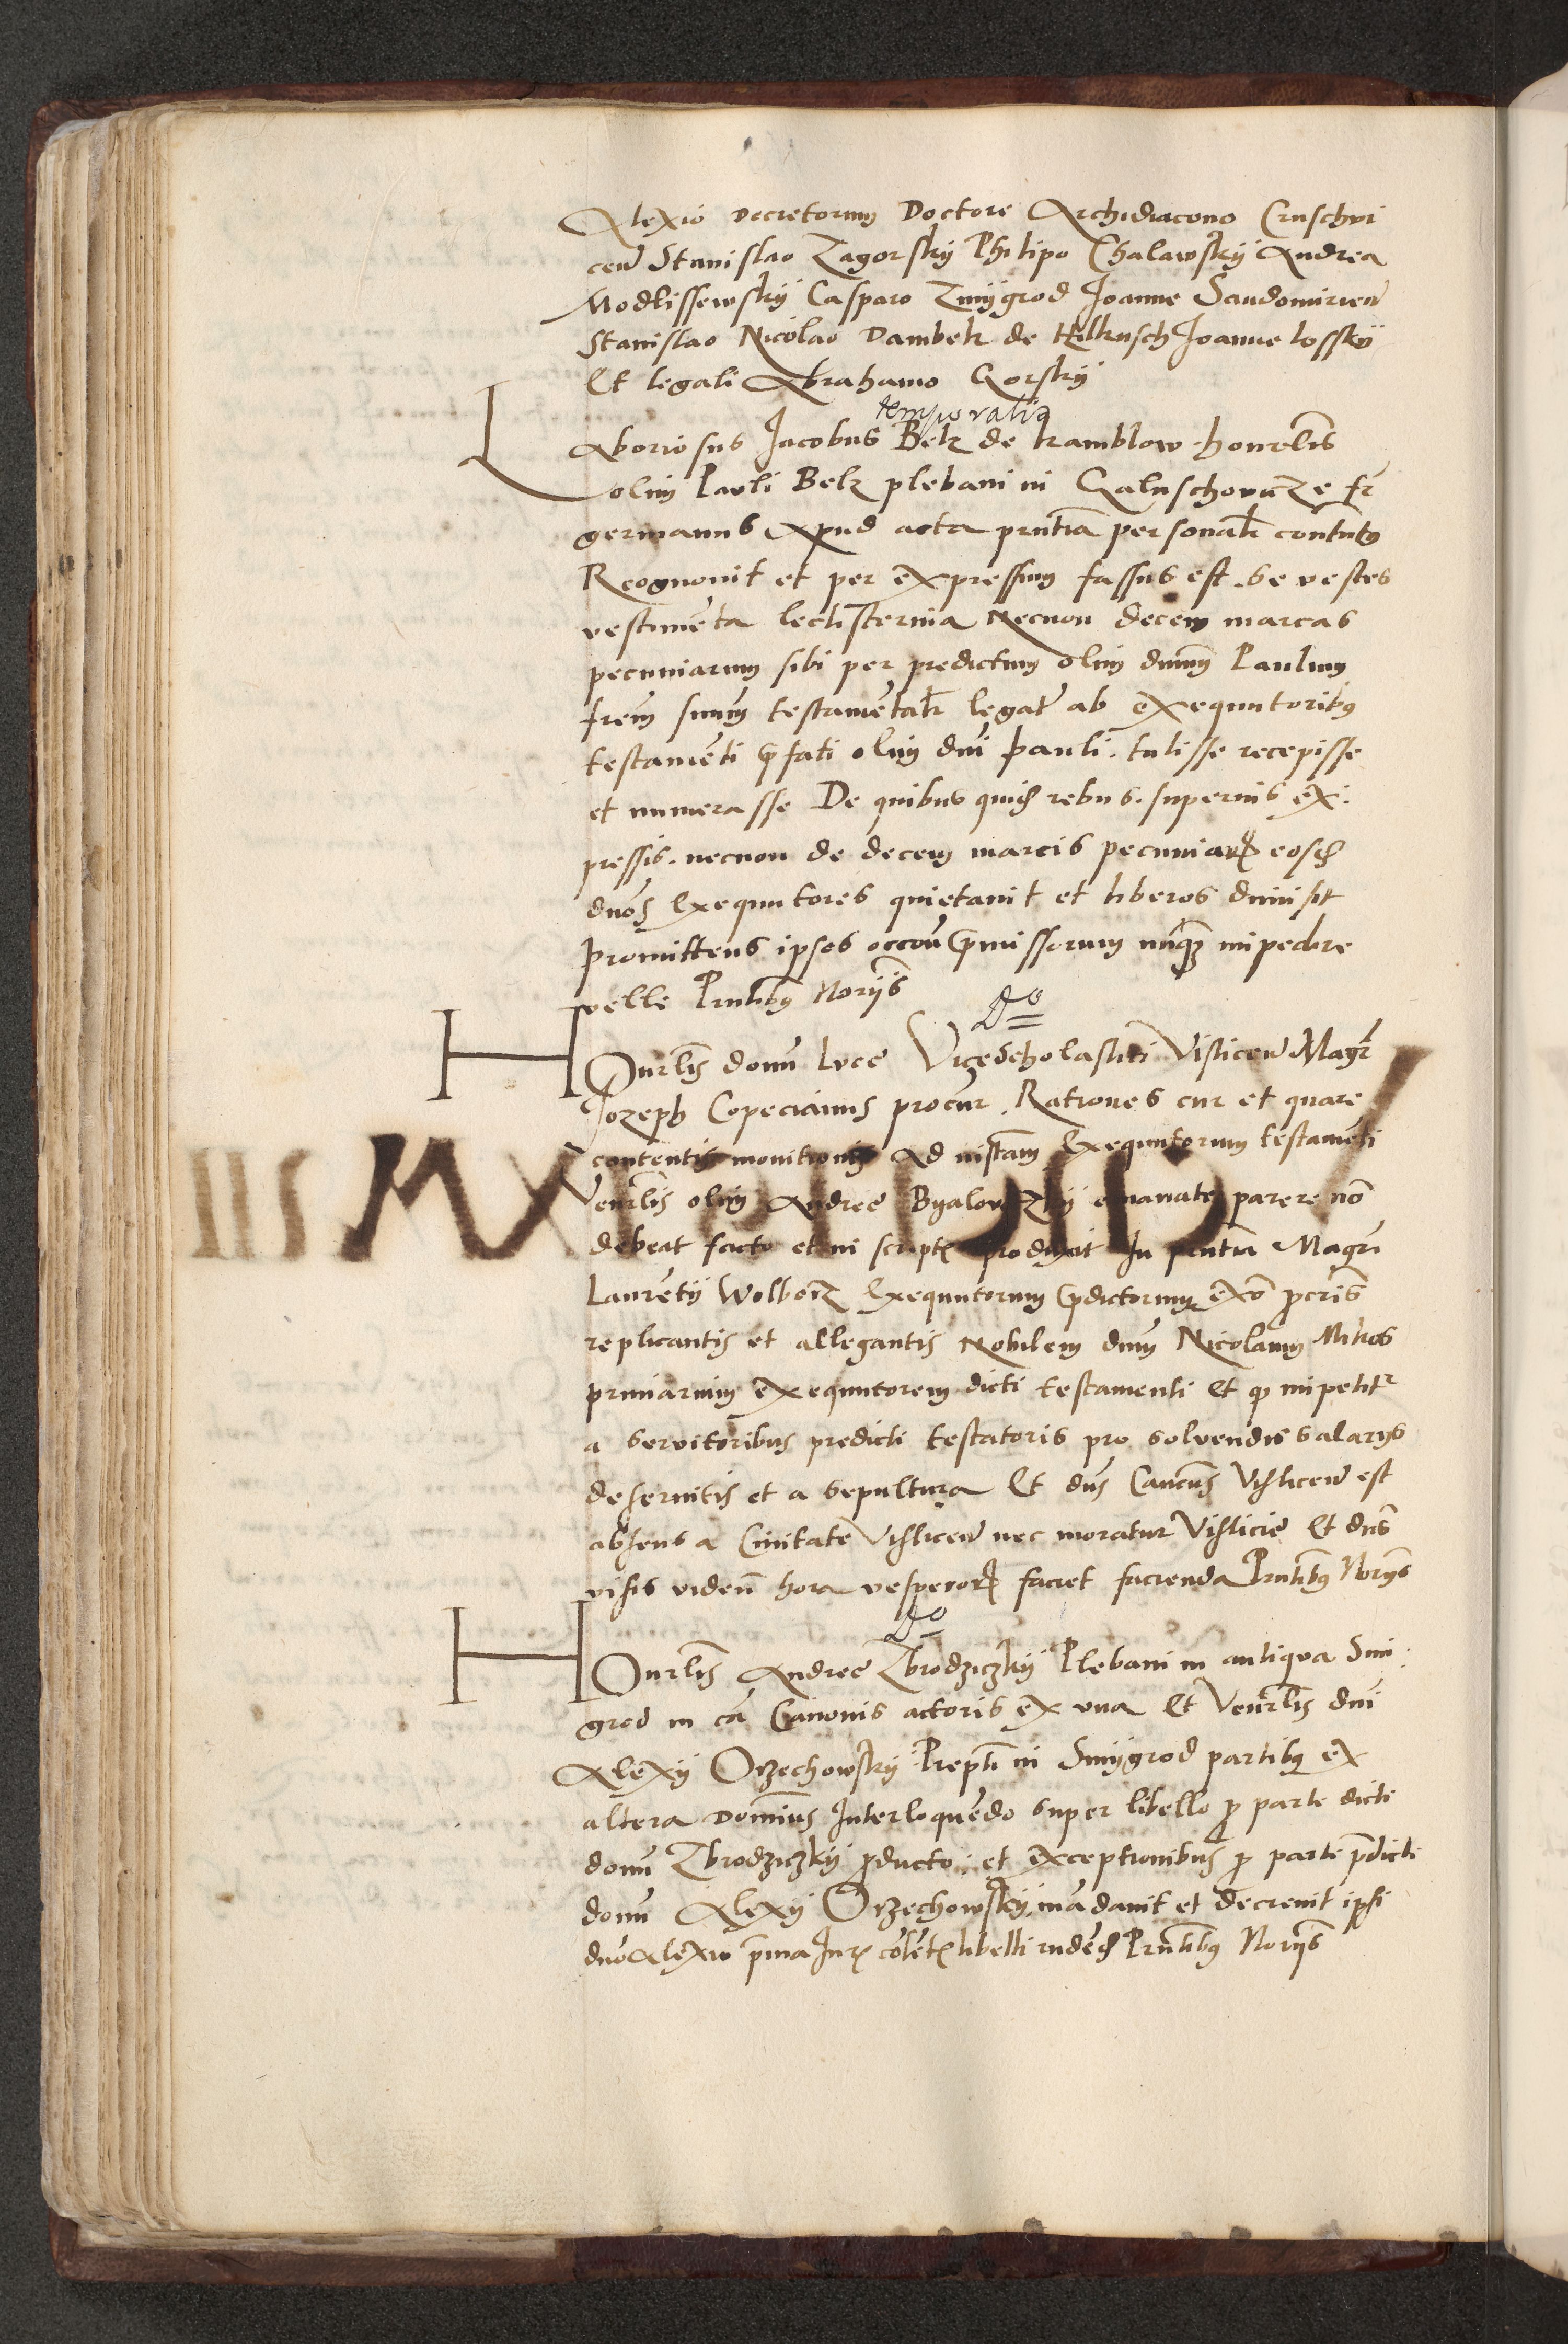 Alexio decretorum Doctore Archidiacono Cruschvi
cen Stanislao Zagorsky Philipo Chalawsky Andrea
Modlissewsky Casparo Zmygrod Joanne Sandomirien
Stanislao Nicolao Dambek de Helkusch Joanne lossky
Et legali Abrahamo Gorsky
temporalia
Laboriosus Jacobus Belz de kamblow honrlis
olim Pauli Belz plebani in Galuschovicze fr
germanus apud acta prntia personalr contutus
Recognovit et per expressum fassus est se vestes
vestimenta lectisternia Necnon decem marcas
pecuniarum sibi per predictum olim dnum Paulum
frem suum testamentalr legat ab exequutoribus
testamenti pfati olim dni pauli tulisse recepisse
et numerasse De quibus quidem rebus superius ex
pressis necnon de decem marcis pecuniarum eosdem
dnos Exequutores quietavit et liberos dimisit
promittens ipsos occon pmissorum nunquam impedire
velle Prntibus Noriis
Do
Honrlis domini Luce Vicescholastici Vislicen Magr
Jozeph Copecianus procur Rationes cur et quare
contentis monitionis ad instam Exequutorum testamenti
Venrlis olim Andree Byalowiczky emanate parere non
debeat facto et in scriptis produxit In prntia Magri
Laurentii Wolborz Exequutorum pdictorum exo pcris
replicantis et allegantis Nobilem dnum Nicolaum Mikos
primarium exequutorem dicti testamenti Et qz impetitr
a servitoribus predicti testatoris pro solvendis salariis
deservitis et a sepultura Et dns Cancus Vislicen est
absens a Civitate Vislicen nec moratur Vislicie Et dns
visis viden hora vesperorum faciet facienda Prntibus Noriis
Do
Honrlis Andree Zbrodziczky Plebani in antiqua Smi
grod in ca Canonis actoris ex una Et Venrlis dni
Alexii Orzechowsky Prepti in Smygrod partibus ex
altera Dominus Interloquendo super libello p parte dicti
domini Zbrodziczky pducto et exceptionibus p parte pdicti
domini Alexii Orzechowsky mandavit et decrevit ipsi
dno Alexio prima Juris libelli Prntibus Noriis